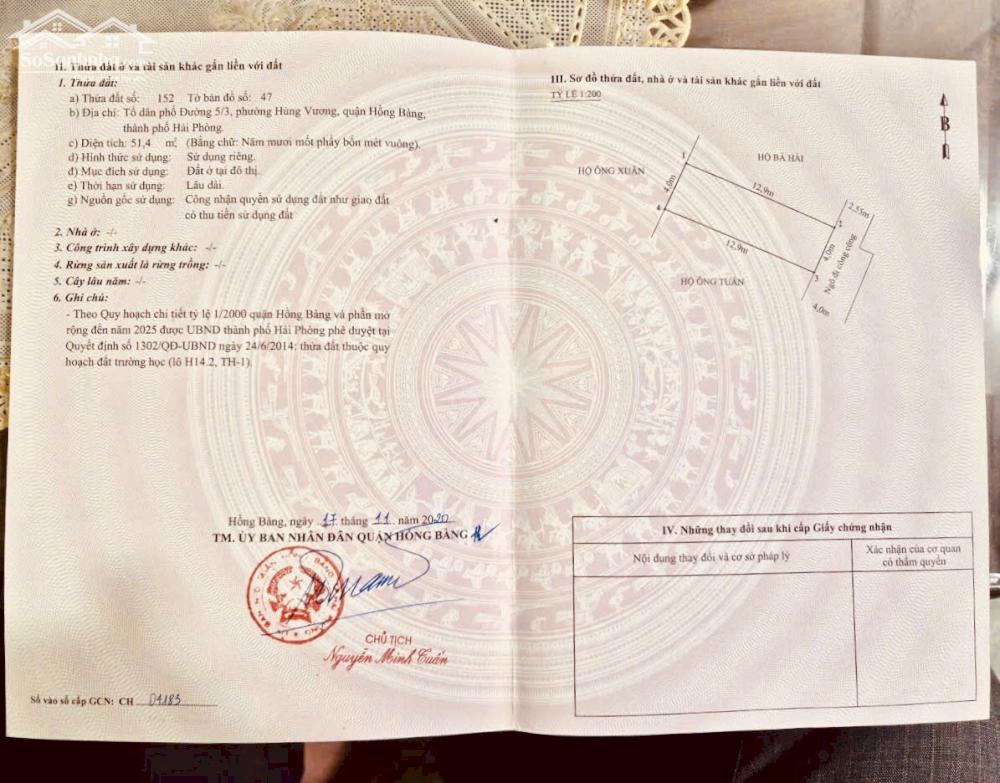 SoSanhnha.com
II. Thửa đất ở và tài sản khác gắn liền với đất
1. Thửa đất:
a) Thửa đất số: 152 Tờ bản đồ số: 47
b) Địa chỉ: Tổ dân phố Đường 5/3, phường Hùng Vương, quận Hồng Bàng,
thành phố Hải Phòng.
c) Diện tích: 51,4 m², (Bằng chữ: Năm mươi mốt phẩy bốn mét vuông).
d) Hình thức sử dụng: Sử dụng riêng.
đ) Mục đích sử dụng: Đất ở tại đô thị.
e) Thời hạn sử dụng: Lâu dài.
g) Nguồn gốc sử dụng: Công nhận quyền sử dụng đất như giao đất
có thu tiền sử dụng đất
2. Nhà ở: -/-
3. Công trình xây dựng khác: -/-
4. Rừng sản xuất là rừng trồng: -/-
5. Cây lâu năm: -/-
6. Ghi chú:
- Theo Quy hoạch chi tiết tỷ lệ 1/2000 quận Hồng Bàng và phần mở
rộng đến năm 2025 được UBND thành phố Hải Phòng phê duyệt tại
Quyết định số 1302/QĐ-UBND ngày 24/6/2014: thửa đất thuộc quy
hoạch đất trường học (lô H14.2, TH-1).
Hồng Bàng, ngày 17 tháng 11 năm 2020
TM. ỦY BAN NHÂN DÂN QUẬN HỒNG BÀNG
CHỦ TỊCH
Nguyễn Minh Tuấn
Số vào sổ cấp GCN: CH 04183
III. Sơ đồ thửa đất, nhà ở và tài sản khác gắn liền với đất
TỶ LỆ 1:200
B
HỘ BÀ HẢI
HỘ ÔNG XUÂN
1
4,0m
12,9m
4
2
2,55m
12,9m
4,0m
Ngõ đi công cộng
3
HỘ ÔNG TUẤN
4,0m
IV. Những thay đổi sau khi cấp Giấy chứng nhận
Nội dung thay đổi và cơ sở pháp lý
Xác nhận của cơ quan
có thẩm quyền